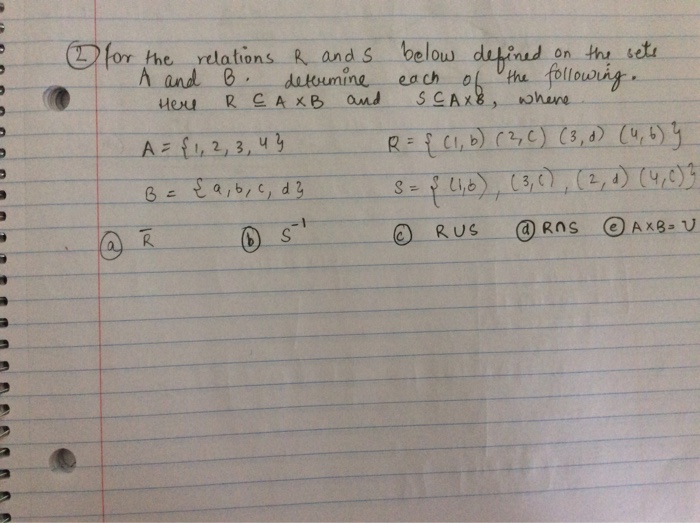 ② for the relations R and S below defined on the sets
A and B. determine each of the following.
Here R ⊆ A×B and S ⊆ A×B, where
A = {1, 2, 3, 4} R = { (1, b) (2, c) (3, d) (4, b) }
B = {a, b, c, d} S = { (1, b), (3, c), (2, d) (4, c) }
ⓐ R̅ ⓑ S⁻¹ ⓒ R ∪ S ⓓ R ∩ S ⓔ A×B = U